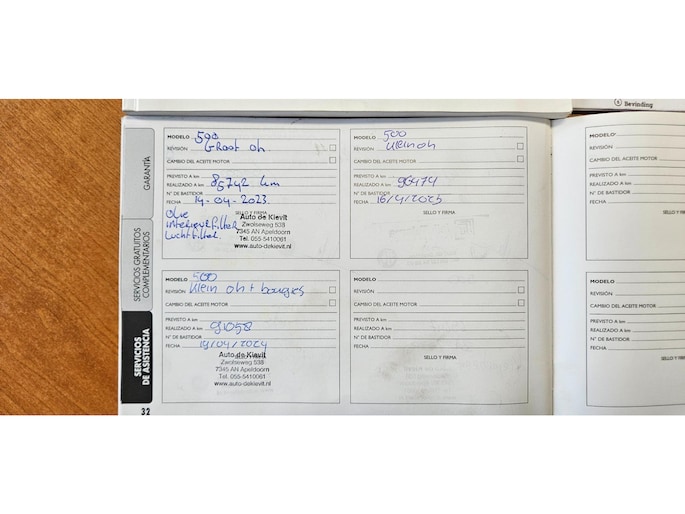 5 Bevinding
GARANTÍA
SERVICIOS GRATUITOS
COMPLEMENTARIOS
SERVICIOS
DE ASISTENCIA
32
MODELO 500
REVISIÓN Groot oh.
CAMBIO DEL ACEITE MOTOR
PREVISTO A km
REALIZADO A km 85742 km
N° DE BASTIDOR
FECHA 14-04-2023.
SELLO Y FIRMA
Olie
interieurfilter
luchtfilter.
Auto de Kievit
Zwolseweg 538
7345 AN Apeldoorn
Tel. 055-5410061
www.auto-dekievit.nl
MODELO 500
REVISIÓN Klein oh
CAMBIO DEL ACEITE MOTOR
PREVISTO A km
REALIZADO A km 96474
N° DE BASTIDOR
FECHA 16/4/2025
SELLO Y FIRMA
MODELO 500
REVISIÓN Klein oh + bougies
CAMBIO DEL ACEITE MOTOR
PREVISTO A km
REALIZADO A km 91058
N° DE BASTIDOR
FECHA 19/04/2024
Auto de Kievit
Zwolseweg 538
7345 AN Apeldoorn
Tel. 055-5410061
www.auto-dekievit.nl
MODELO
REVISIÓN
CAMBIO DEL ACEITE MOTOR
PREVISTO A km
REALIZADO A km
N° DE BASTIDOR
FECHA
SELLO Y FIRMA
MODELO
REVISIÓN
CAMBIO DEL ACEITE MOTOR
PREVISTO A km
REALIZADO A km
N° DE BASTIDOR
FECHA
SELLO Y FIRMA
MODELO
REVISIÓN
CAMBIO DEL ACEITE MOTOR
PREVISTO A km
REALIZADO A km
N° DE BASTIDOR
FECHA
SELLO Y FIRMA